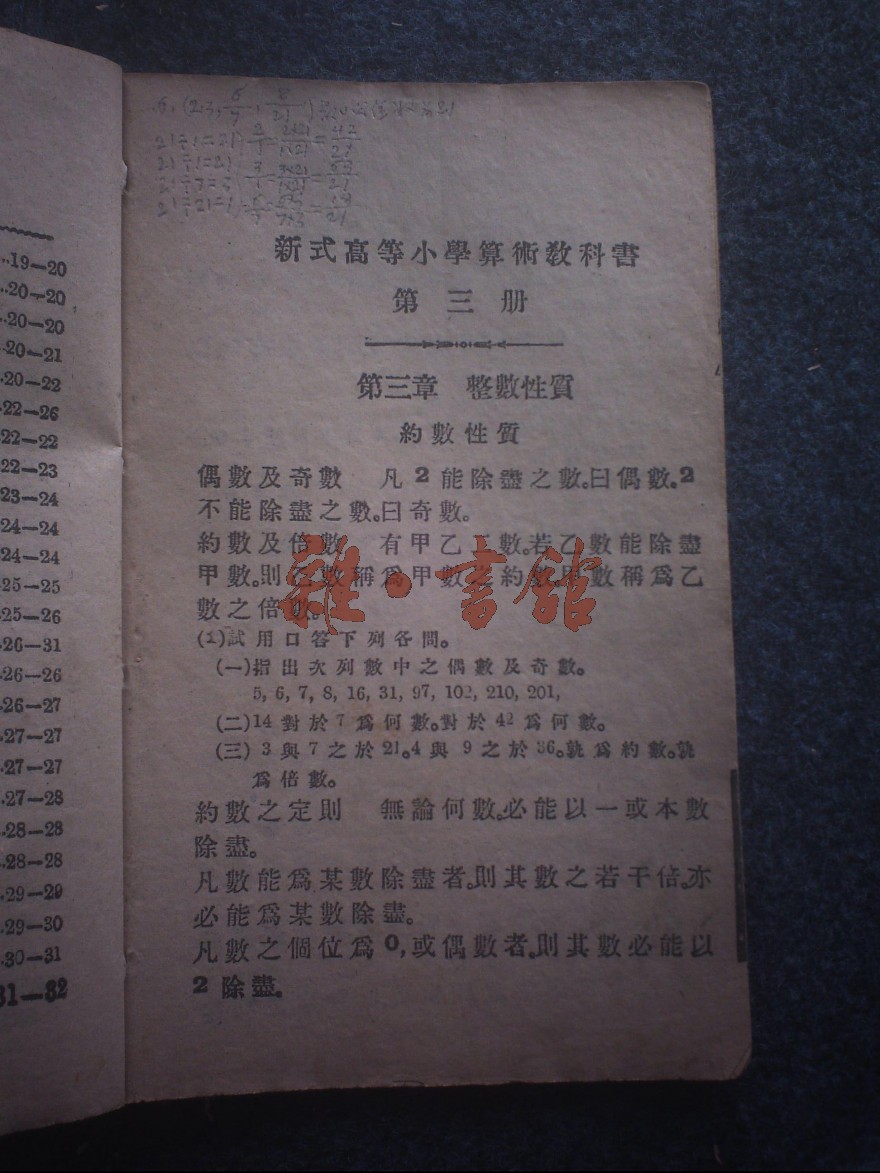 ..19—20
..20—20
..20—20
.20—21
.20—22
.22—26
.22—22
.22—23
.23—24
.24—24
.24—24
.25—25
.25—26
.26—31
.26—26
.26—27
.27—27
.27—27
.27—28
.28—28
.28—28
.29—29
.29—30
.30—31
31—32
21÷1=21
21÷1=21
21÷7=3
21÷21=1
新式高等小學算術教科書
第三册
第三章 整數性質
約數性質
偶數及奇數 凡2能除盡之數。曰偶數。2
不能除盡之數。曰奇數。
約數及倍數 有甲乙二數。若乙數能除盡
甲數。則乙數稱爲甲數之約數。甲數稱爲乙
數之倍數。
(1)試用口答下列各問。
(一)指出次列數中之偶數及奇數。
5, 6, 7, 8, 16, 31, 97, 102, 210, 201,
(二)14對於7爲何數。對於42爲何數。
(三)3與7之於21。4與9之於36。孰爲約數。孰
爲倍數。
約數之定則 無論何數。必能以一或本數
除盡。
凡數能爲某數除盡者。則其數之若干倍。亦
必能爲某數除盡。
凡數之個位爲0,或偶數者。則其數必能以
2除盡。
雜·書館